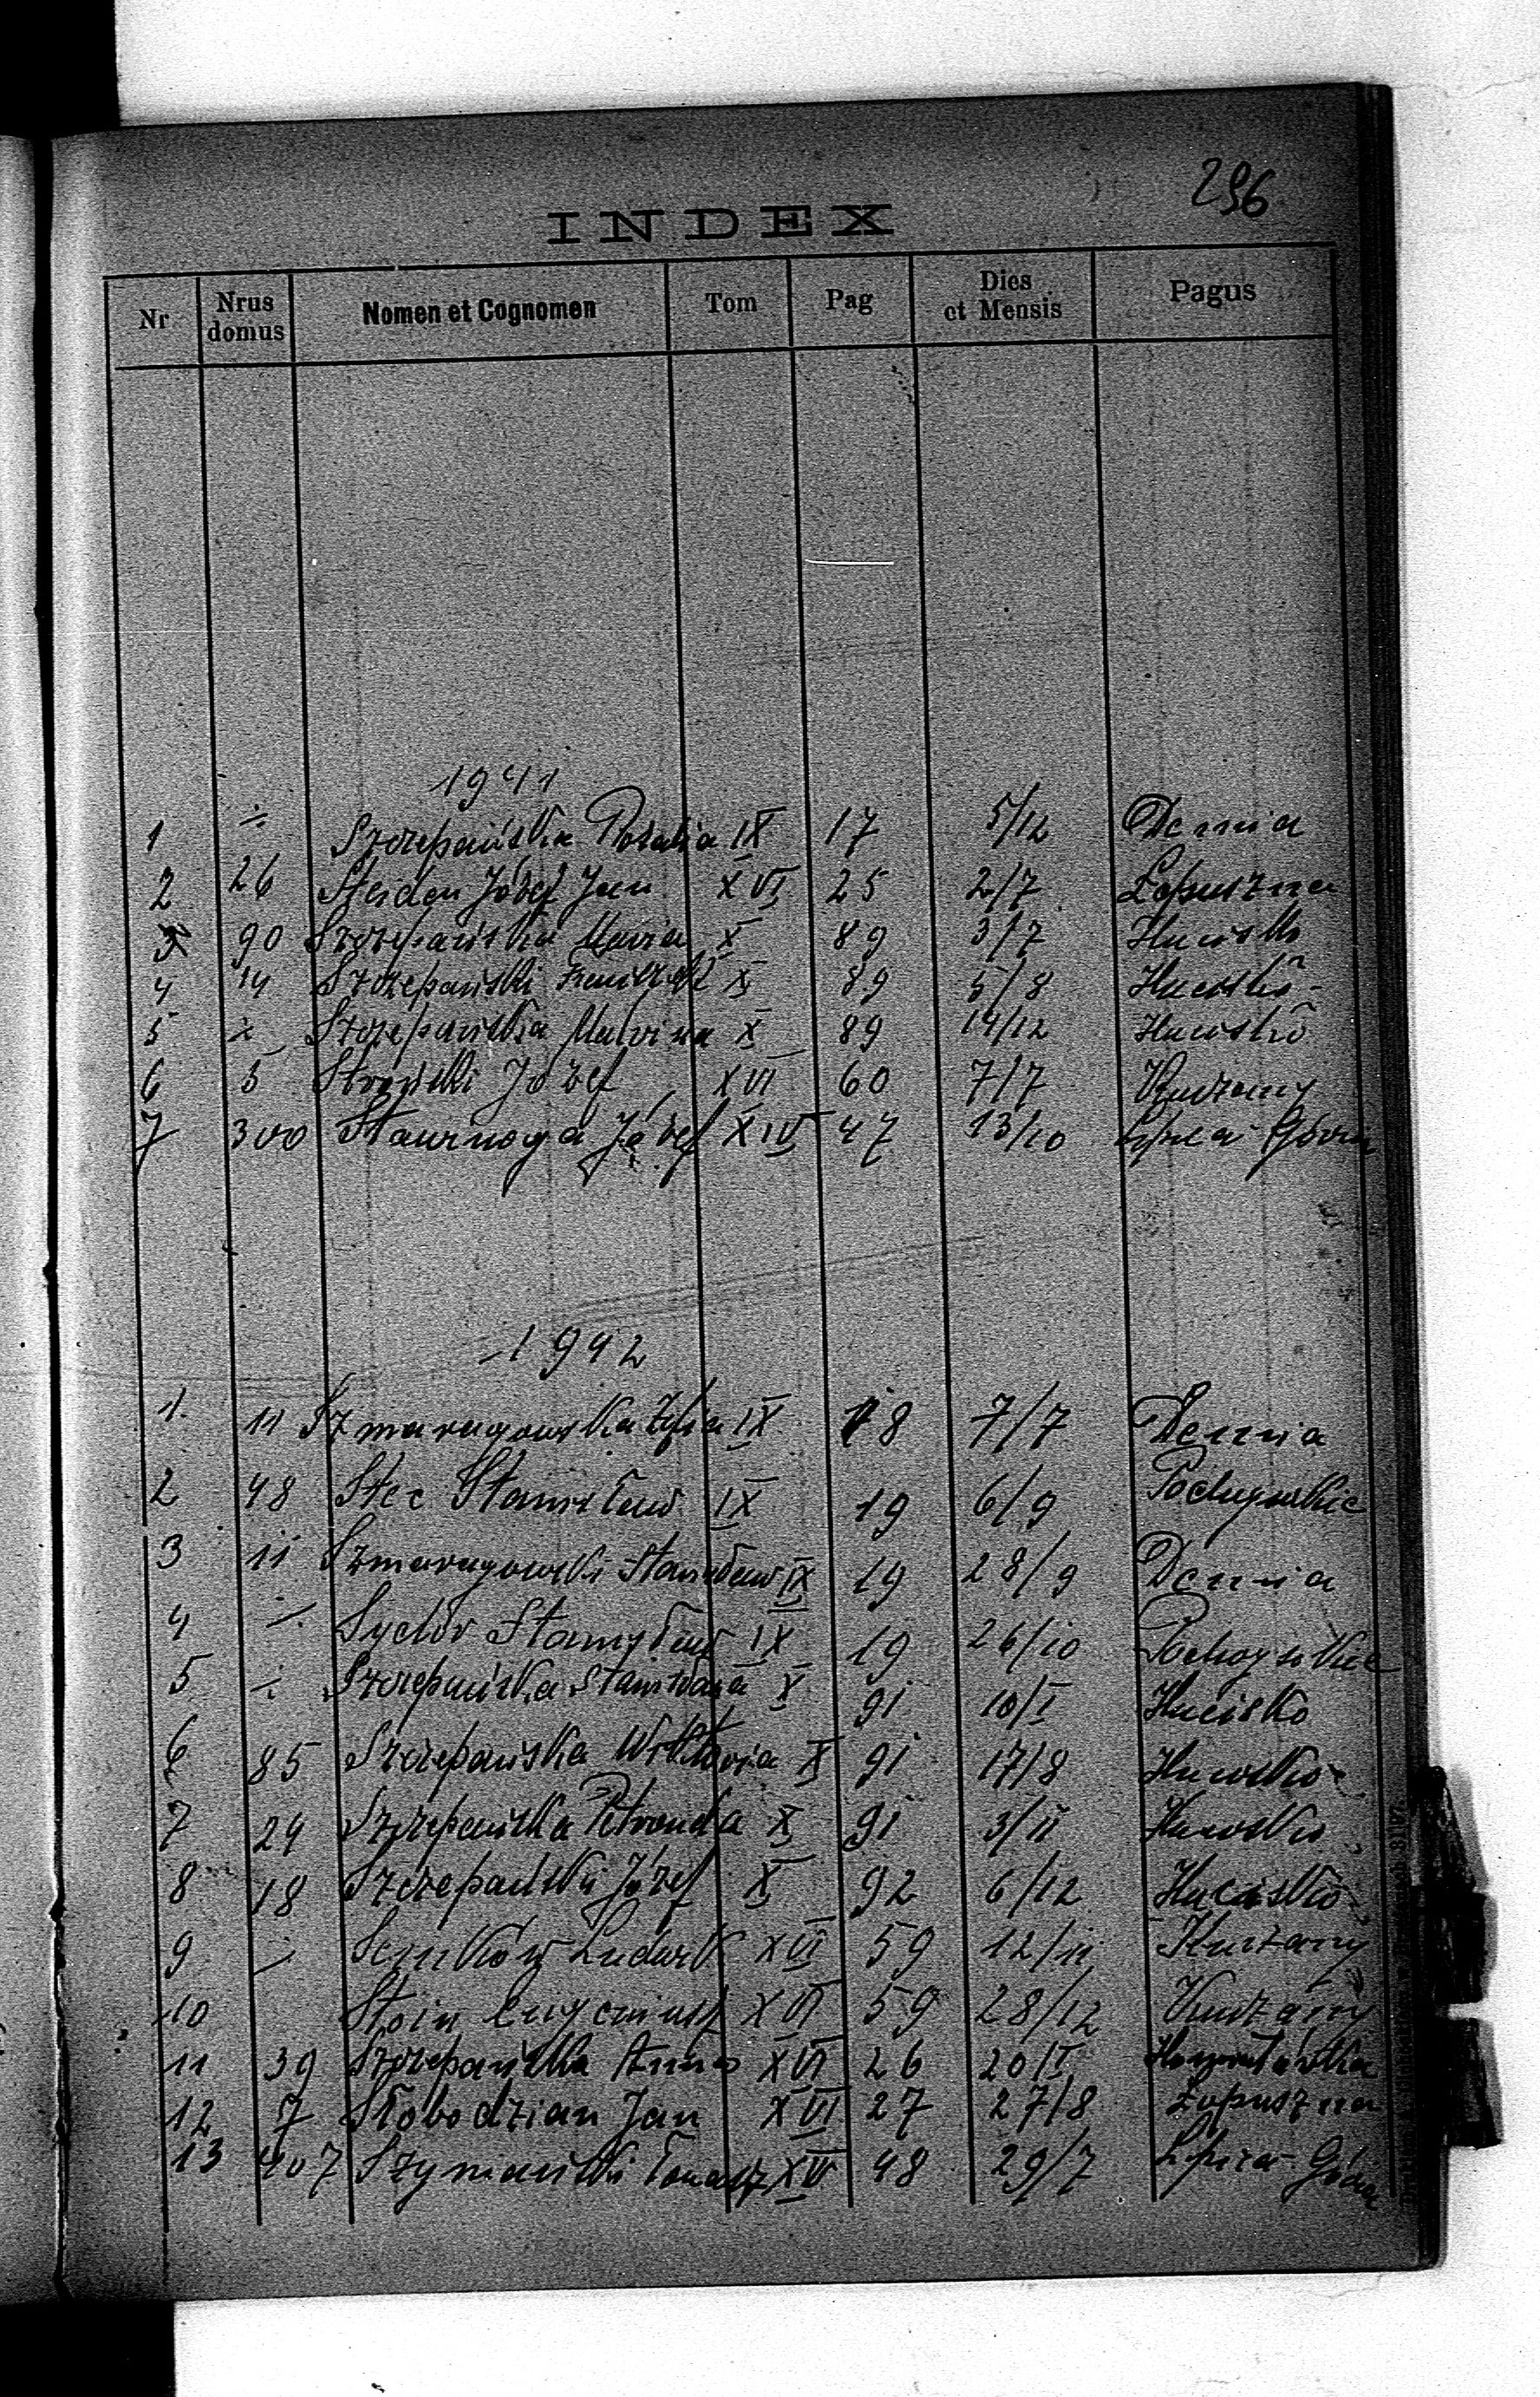 296
INDEX
Nr Nrus domus Nomen et Cognomen Tom Pag Dies et Mensis Pagus
1941
1 ÷ Szczepańska Rozalia IX 17 5/12 Demnia
2 26 Steiden Józef Jan XVI 25 2/7 Łopuszna
3 90 Szczepańska Maria X 89 3/7 Hucisko
4 14 Szczepański X 89 5/8 Hucisko
5 ÷ Szczepańska Malvina X 89 14/12 Hucisko
6 5 Józef XVI 60 7/7
7 300 Józef XIV 47 13/10 Lipica Górna
1942
1. 11 Szmaragowska Zofia IX 18 7/7 Demnia
2 48 Stec Stanisław IX 19 6/9
3 11 Szmaragowski Stanisław IX 19 28/9 Demnia
4 ÷ Sydor Stanisław IX 19 26/10
5 ÷ Szczepańska Stanisława X 91 10/I Hucisko
6 85 Szczepańska Wiktoria X 91 17/8 Hucisko
7 24 Szczepańska Petronela X 91 3/11 Hucisko
8 18 Szczepański Józef X 92 6/12 Hucisko
9 ÷ Senków Ludwik XVI 59 12/11
10 XVI 59 28/12
11 39 Szczepańska Anna XVI 26 20/I
12 7 Słobodzian Jan XVI 27 27/8 Łopuszna
13 407 Szymański Tomasz 48 29/7 Lipica Górna